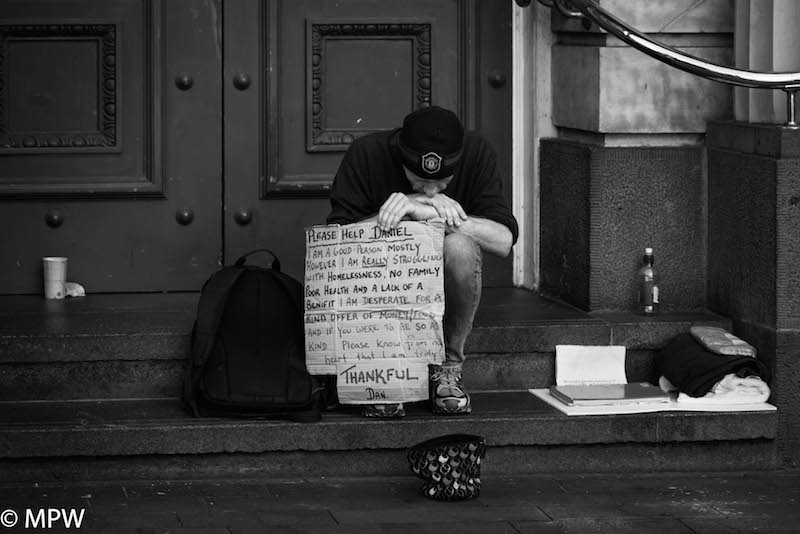 PLEASE HELP DANIEL
I AM A GOOD PERSON MOSTLY
HOWEVER I AM REALLY STRUGGLING
WITH HOMELESSNESS, NO FAMILY
POOR HEALTH AND A LACK OF A
BENIFIT I AM DESPERATE FOR A
KIND OFFER OF MONEY/FOOD
AND IF YOU WERE TO BE SO
KIND. Please Know from my
heart that I am truly
THANKFUL
DAN.
© MPW